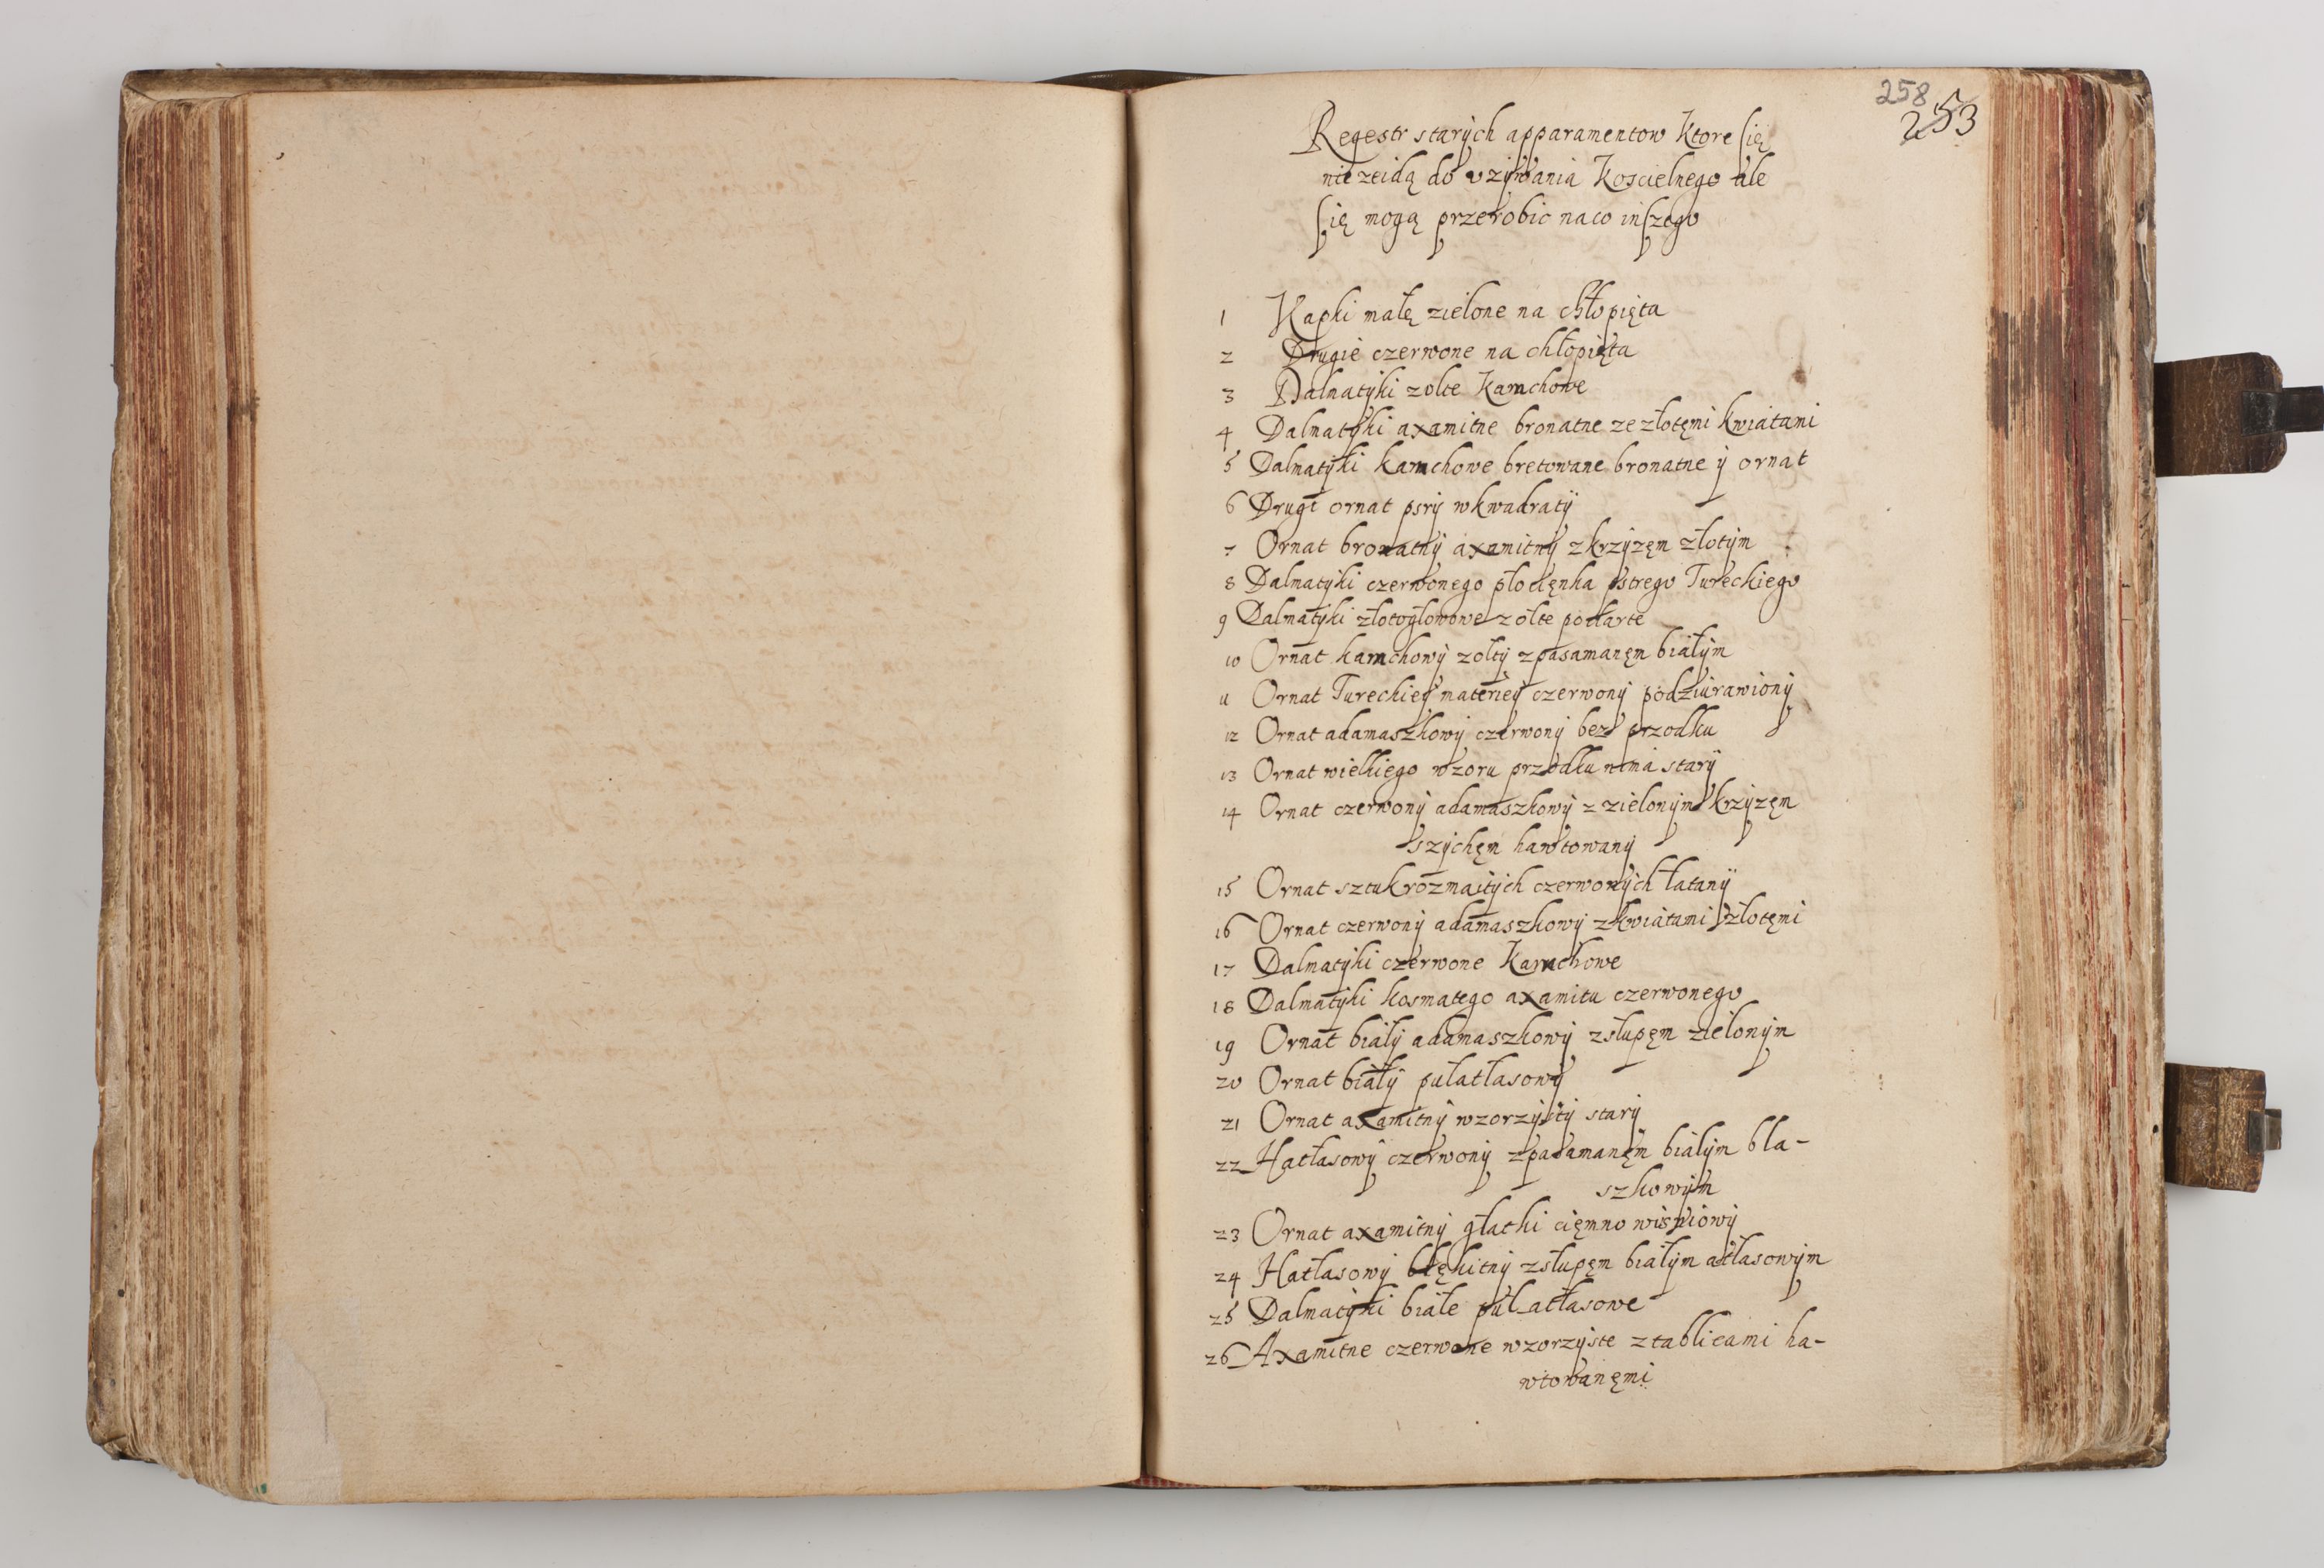 258
253
Regestr starÿch apparamentow Ktore się
nie zeidą do vzÿwania Koscielnego ale
się mogą przerobic na co inszego
1 Kapki małę zielone na chłopięta
2 Drugie czerwone na chłopięta
3 Dalmatÿki zolte Kamchowe
4 Dalmatÿki axamitne bronatne ze złotęmi kwiatami
5 Dalmatÿki kamchowe bretowane bronatne ÿ ornat
6 Drugi ornat psrÿ w kwadratÿ
7 Ornat bronatnÿ axamitnÿ z krzÿzęm złotÿm
8 Dalmatÿki czerwonego płocięnka pstrego Tureckiego
9 Dalmatÿki złotogłowowe zolte podarte
10 Ornat kamchowÿ zoltÿ z pasamanęm białÿm
11 Ornat Tureckieÿ materieÿ czerwonÿ podziurawionÿ
12 Ornat adamaszkowÿ czerwonÿ bez przodku
13 Ornat wielkiego wzoru przodku nima starÿ
14 Ornat czerwonÿ adamaszkowÿ z zielonÿm krzÿzęm
szÿchęm hawtowanÿ
15 Ornat sztuk rozmaitÿch czerwonÿch łatanÿ
16 Ornat czerwonÿ adamaszkowÿ z kwiatami złotęmi
17 Dalmatÿki czerwone Kamchowe
18 Dalmatÿki kosmatego axamitu czerwonego
19 Ornat białÿ adamaszkowÿ z słupęm zielonÿm
20 Ornat białÿ pułatłasowÿ
21 Ornat axamitnÿ wzorzÿstÿ starÿ
22 Hatłasowÿ czerwonÿ z pasamanęm białÿm bla-
szkowÿm
23 Ornat axamitnÿ głatki cięmno wisniowÿ
24 Hatłasowÿ błękitnÿ z słupęm białÿm atłasowÿm
25 Dalmatÿki białe puł atłasowe
26 Axamitne czerwone wzorzÿste z tablicami ha-
wtowanęmi